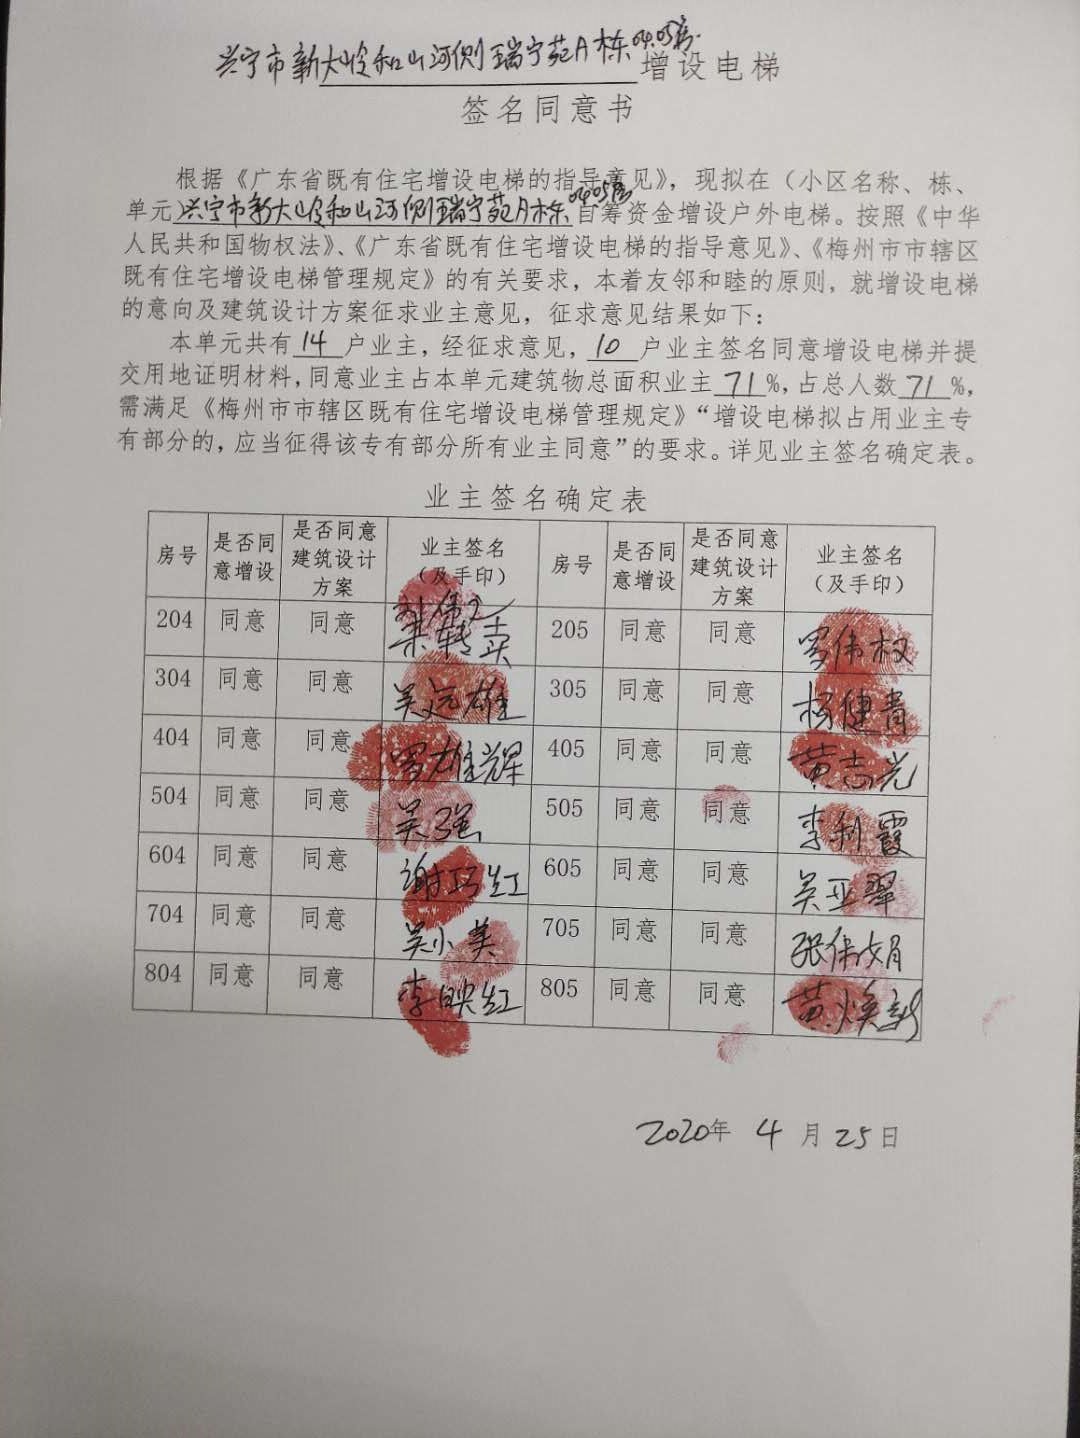 兴宁市新大岭和山河侧瑞宁苑A栋04.05房增设电梯
签名同意书
根据《广东省既有住宅增设电梯的指导意见》，现拟在（小区名称、栋、
单元）兴宁市新大岭和山河侧瑞宁苑A栋04.05房自筹资金增设户外电梯。按照《中华
人民共和国物权法》、《广东省既有住宅增设电梯的指导意见》、《梅州市市辖区
既有住宅增设电梯管理规定》的有关要求，本着友邻和睦的原则，就增设电梯
的意向及建筑设计方案征求业主意见，征求意见结果如下：
本单元共有14户业主，经征求意见，10户业主签名同意增设电梯并提
交用地证明材料，同意业主占本单元建筑物总面积业主71%，占总人数71%，
需满足《梅州市市辖区既有住宅增设电梯管理规定》“增设电梯拟占用业主专
有部分的，应当征得该专有部分所有业主同意”的要求。详见业主签名确定表。
业主签名确定表
房号 是否同意增设 是否同意建筑设计方案 业主签名（及手印） 房号 是否同意增设 是否同意建筑设计方案 业主签名（及手印）
204 同意 同意 205 同意 同意 罗伟权
304 同意 同意 吴远雄 305 同意 同意 杨健青
404 同意 同意 罗雄辉 405 同意 同意 黄志光
504 同意 同意 吴强 505 同意 同意 李利霞
604 同意 同意 谢巧红 605 同意 同意 吴亚翠
704 同意 同意 吴小美 705 同意 同意 张伟娟
804 同意 同意 李映红 805 同意 同意 黄焕新
2020年4月25日